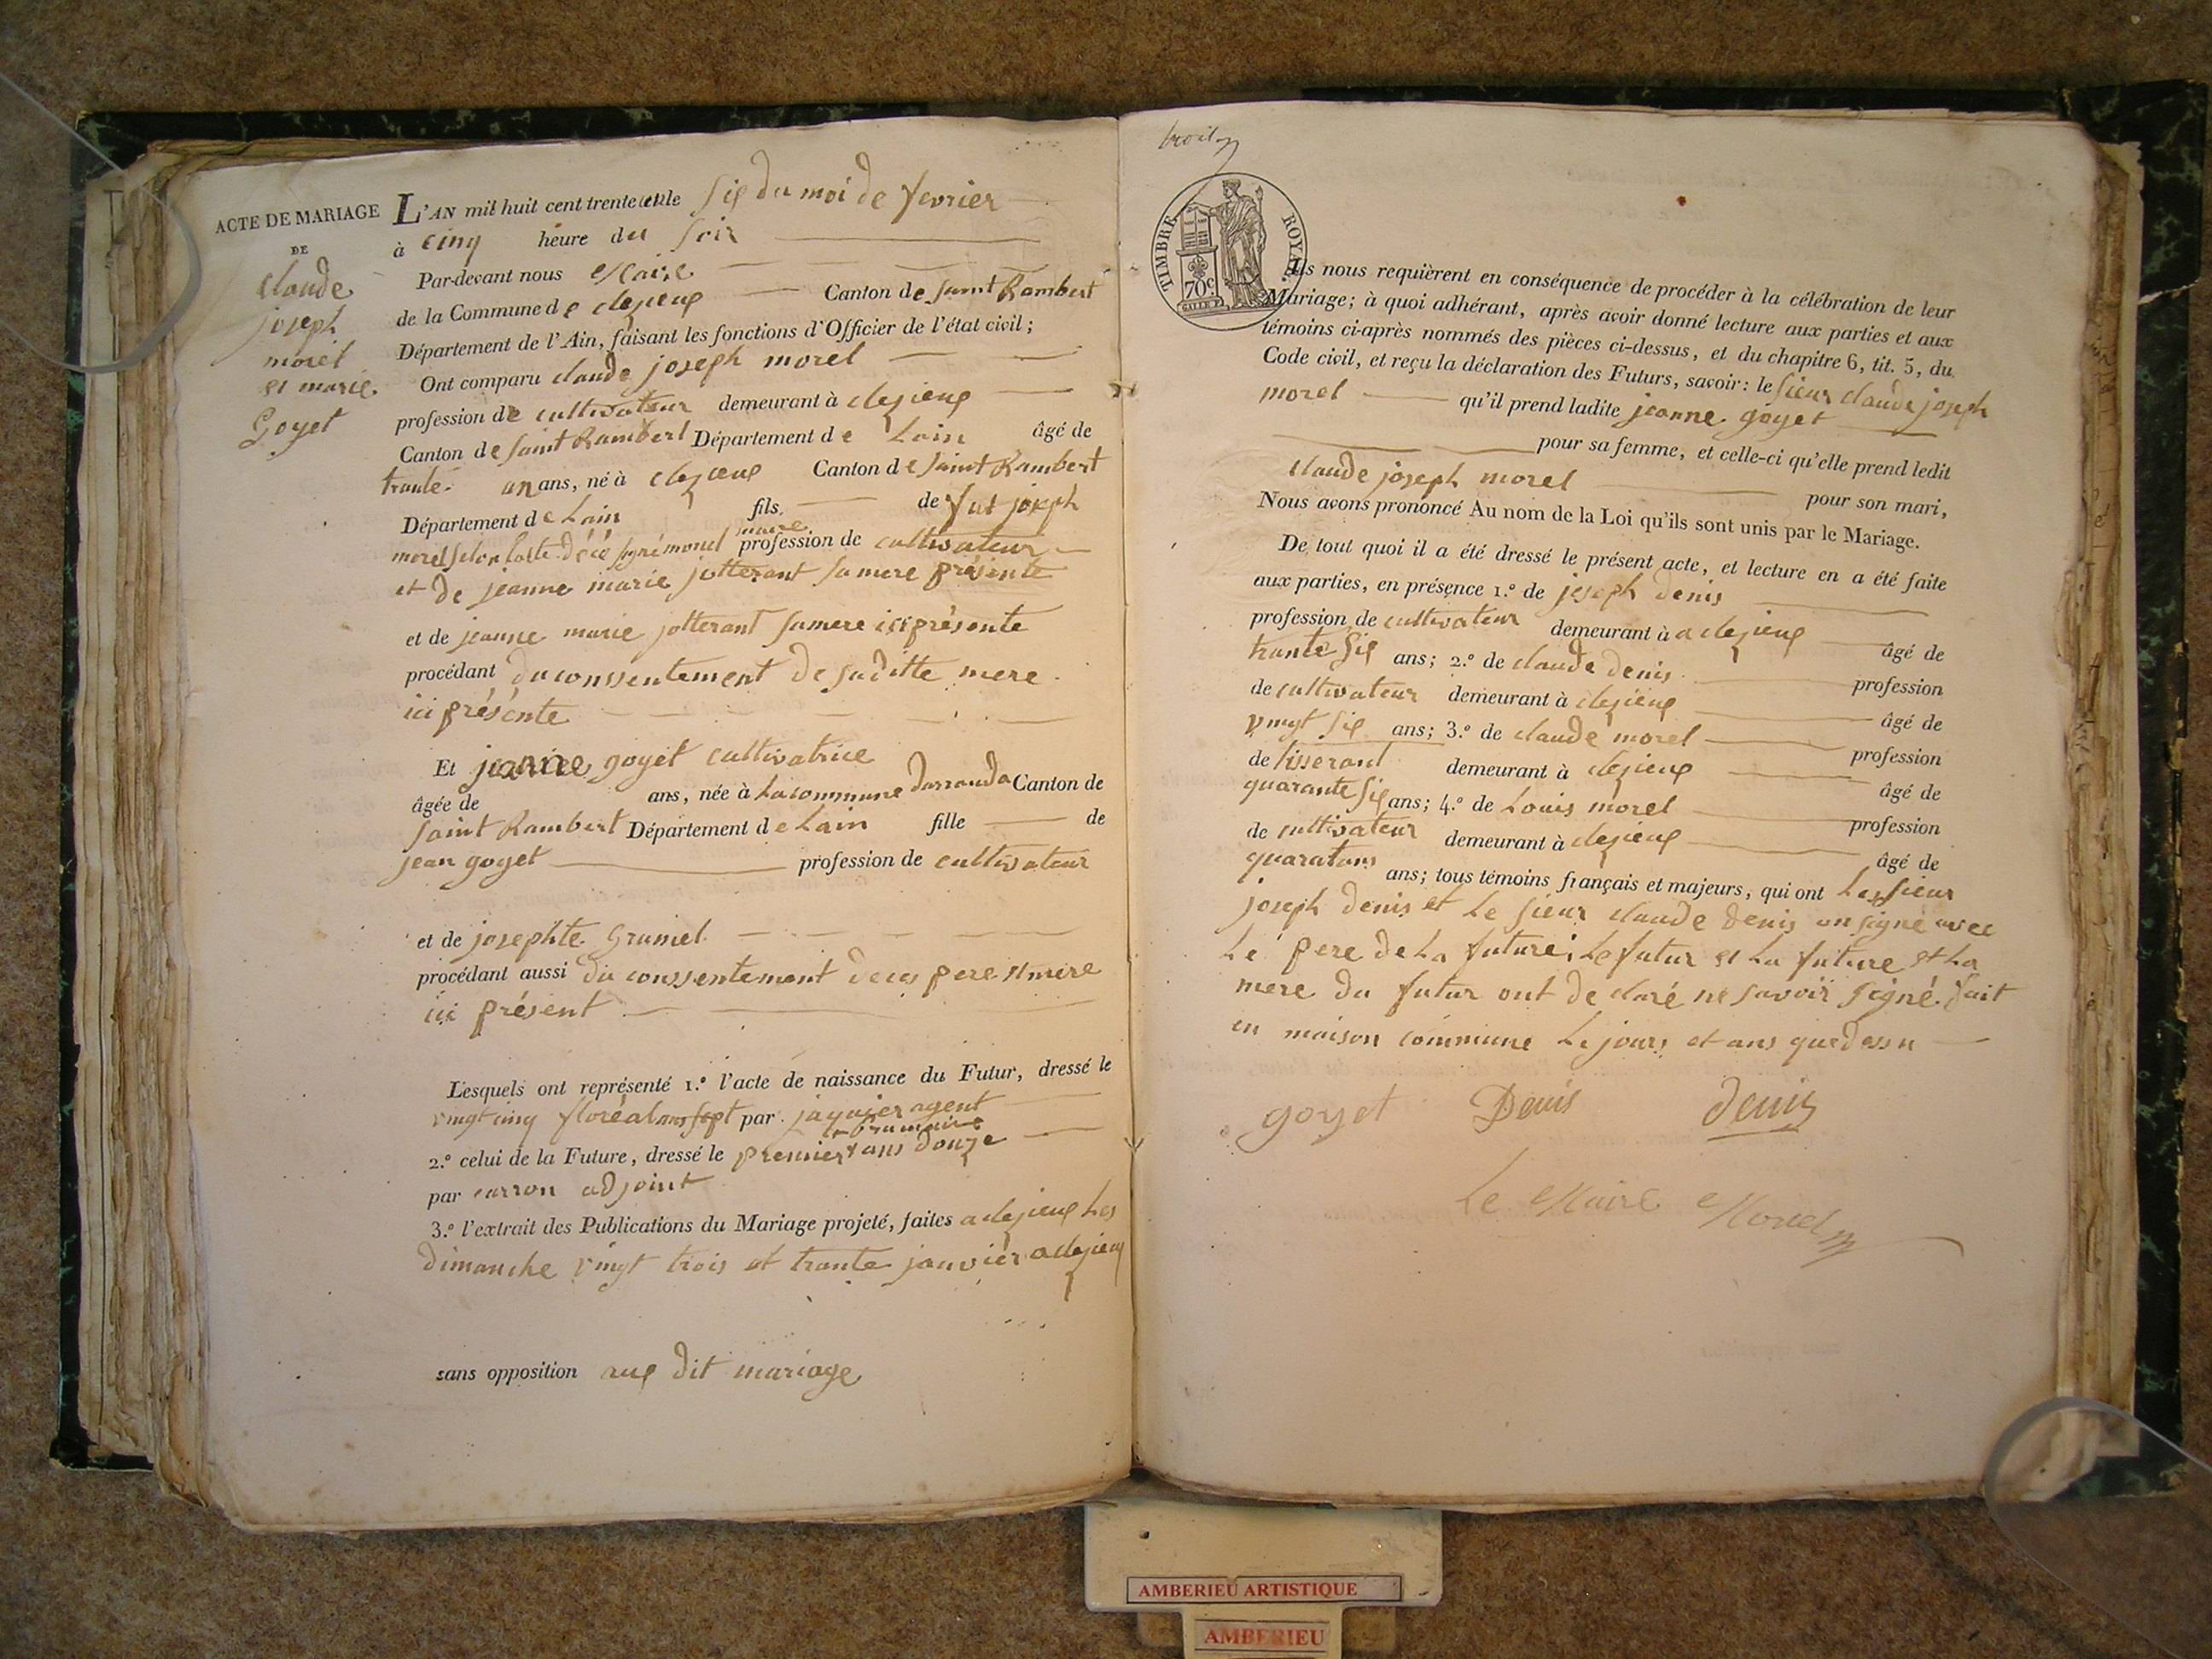 ACTE DE MARIAGE
DE
claude
joseph
morel
et marie
Goyet
L'AN mil huit cent trente et le six du moi de fevrier
à cinq heure du soir
Par-devant nous Maire
de la Commune de clezieux Canton de saint Rambert
Département de l'Ain, faisant les fonctions d'Officier de l'état civil;
Ont comparu claude joseph morel
profession de cultivateur demeurant à clezieux
Canton de saint Rambert Département de Lain âgé de
trante un ans, né à clezieux Canton de saint Rambert
Département de Lain fils de fut joseph
morel profession de cultivateur
et de jeanne marie jotterant sa mere présente
et de jeanne marie jotterant sa mere ici présente
procédant du conssentement de saditte mere
ici présente
Et jeanne goyet cultivatrice
âgée de ans, née à La commune darranda Canton de
saint Rambert Département de Lain fille de
jean goyet profession de cultivateur
et de josephte Grumel
procédant aussi du conssentement de ces pere et mere
ici présent
Lesquels ont représenté 1.º l'acte de naissance du Futur, dressé le
vingt cinq floréal ans sept par jaquier agent
2.º celui de la Future, dressé le premier brumaire ans douze
par carron adjoint
3.º l'extrait des Publications du Mariage projeté, faites a clezieux Les
dimanche vingt trois et trante janvier a clezieux
sans opposition aux dit mariage
TIMBRE ROYAL
70c
Ils nous requièrent en conséquence de procéder à la célébration de leur
Mariage; à quoi adhérant, après avoir donné lecture aux parties et aux
témoins ci-après nommés des pièces ci-dessus, et du chapitre 6, tit. 5, du
Code civil, et reçu la déclaration des Futurs, savoir: le sieur claude joseph
morel qu'il prend ladite jeanne goyet
pour sa femme, et celle-ci qu'elle prend ledit
claude joseph morel pour son mari,
Nous avons prononcé Au nom de la Loi qu'ils sont unis par le Mariage.
De tout quoi il a été dressé le présent acte, et lecture en a été faite
aux parties, en présence 1.º de joseph denis
profession de cultivateur demeurant à a clezieux âgé de
trante six ans; 2.º de claude denis profession
de cultivateur demeurant à clezieux âgé de
vingt six ans; 3.º de claude morel profession
de tisserand demeurant à clezieux âgé de
quarante six ans; 4.º de Louis morel profession
de cultivateur demeurant à clezieux âgé de
ans; tous témoins français et majeurs, qui ont Les sieur
joseph denis et Le sieur claude denis on signé avec
Le pere de La future; Le futur et La future et La
mere du futur ont déclaré ne savoir signé. fait
en maison commune Le jours et ans que dessu
goyet Denis denis
Le Maire Morel
AMBERIEU ARTISTIQUE
AMBERIEU